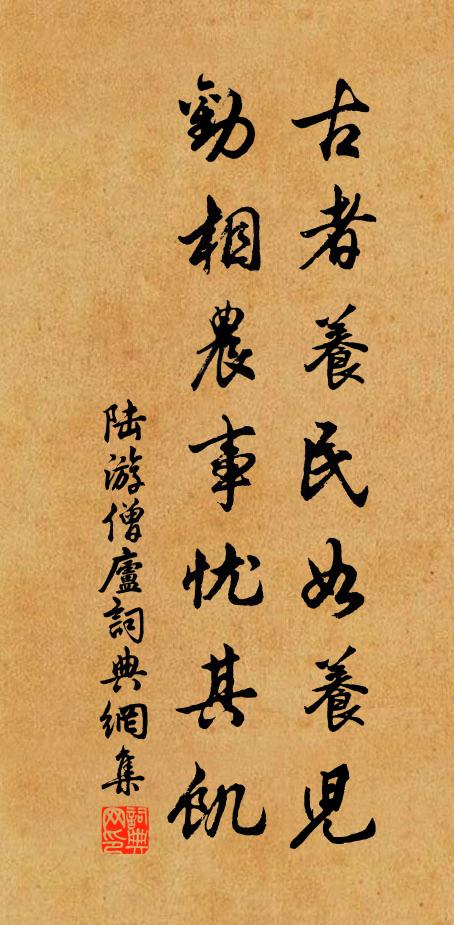 古者養民如養兒
勸相農事忧其飢
陸游僧廬詞典網集
詞典网印